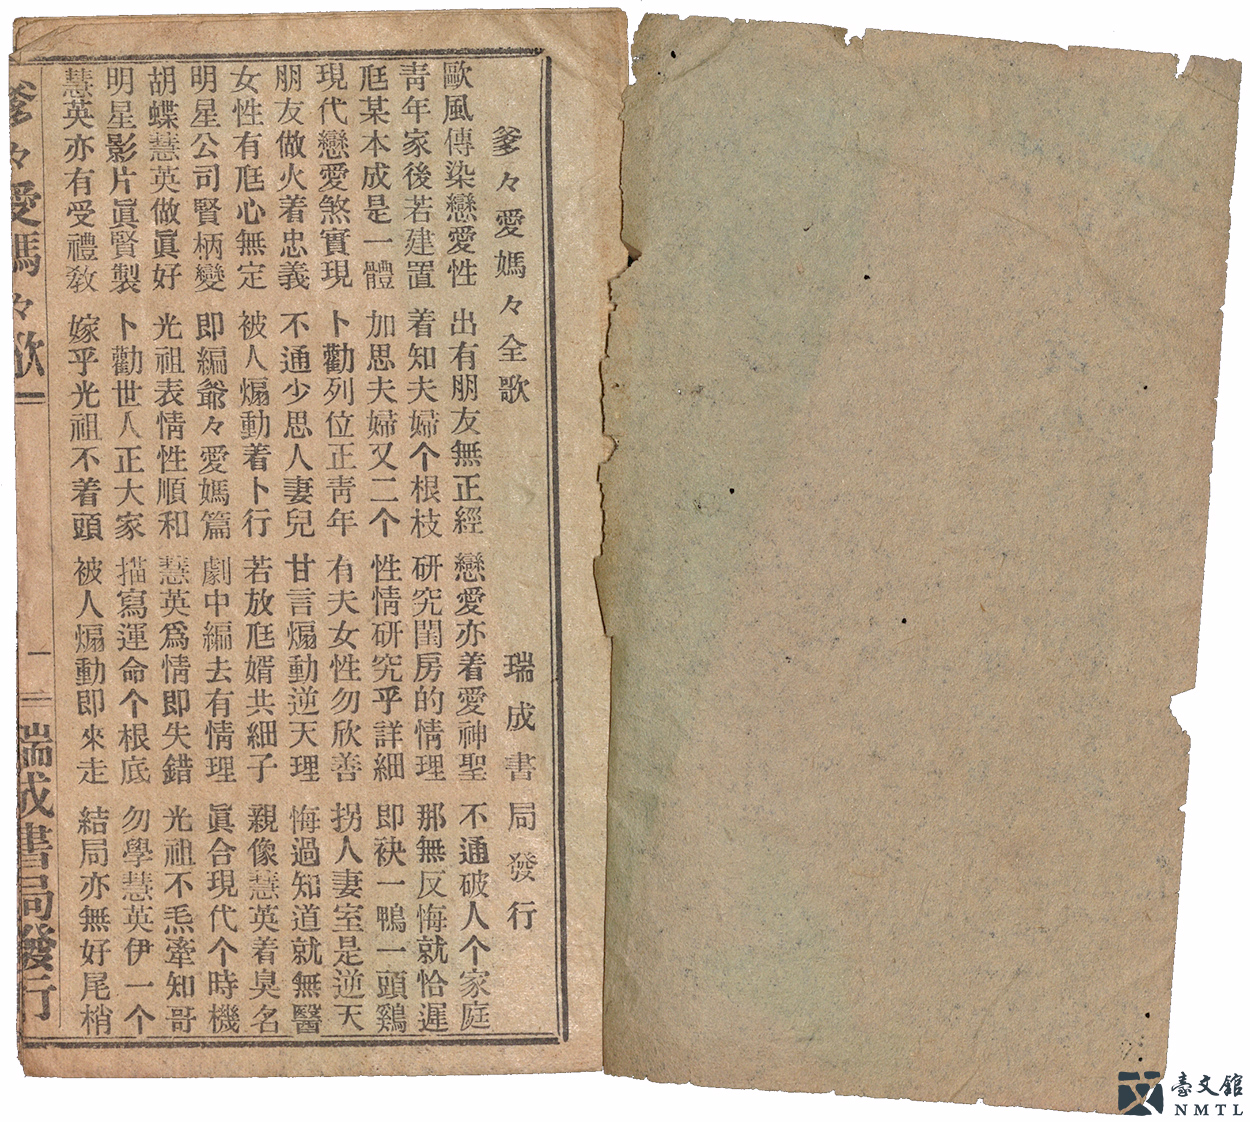 爹々愛媽々全歌 瑞成書局發行
歐風傳染戀愛性 出有朋友無正經 戀愛亦着愛神聖 不通破人个家庭
靑年家後若建置 着知夫婦个根枝 研究閨房的情理 那無反悔就恰遲
尫某本成是一體 加思夫婦又二个 性情研究乎詳細 即袂一鴨一頭鷄
現代戀愛煞實現 卜勸列位正靑年 有夫女性勿欣善 拐人妻室是逆天
朋友做火着忠義 不通少思人妻兒 甘言煽動逆天理 悔過知道就無醫
女性有尫心無定 被人煽動着卜行 若放尫婿共細子 親像慧英着臭名
明星公司賢柄變 即編爺々愛媽篇 劇中編去有情理 眞合現代个時機
胡蝶慧英做眞好 光祖表情性順和 慧英爲情即失錯 光祖不焄牽知哥
明星影片眞賢製 卜勸世人正大家 描寫運命个根底 勿學慧英伊一个
慧英亦有受禮敎 嫁乎光祖不着頭 被人煽動即來走 結局亦無好尾梢
爹々愛媽々歌 一 二 瑞成書局發行
臺文館
NMTL